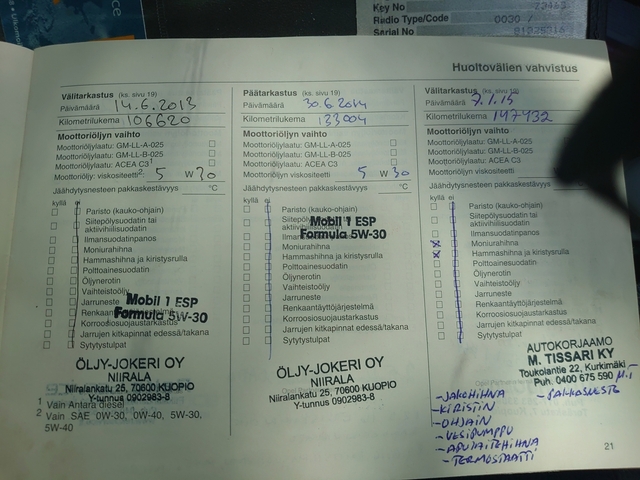 Key No 73463
Radio Type/Code 0030 /
Serial No
Huoltovälien vahvistus
Välitarkastus (ks. sivu 19)
Päivämäärä 14.6.2013
Kilometrilukema 106620
Moottoriöljyn vaihto
Moottoriöljylaatu: GM-LL-A-025
Moottoriöljylaatu: GM-LL-B-025
Moottoriöljylaatu: ACEA C3¹
Moottoriöljyn viskositeetti²: 5 W 30
Jäähdytysnesteen pakkaskestävyys °C
kyllä ei
Paristo (kauko-ohjain)
Siitepölysuodatin tai
aktiivihiilisuodatin
Ilmansuodatinpanos
Moniurahihna
Hammashihna ja kiristysrulla
Polttoainesuodatin
Öljynerotin
Vaihteistoöljy
Jarruneste
Korroosiosuojaustarkastus
Jarrujen kitkapinnat edessä/takana
Sytytystulpat
Mobil 1 ESP
Formula 5W-30
ÖLJY-JOKERI OY
NIIRALA
Niiralankatu 25, 70600 KUOPIO
Y-tunnus 0902983-8
1 Vain Antara diesel
2 Vain SAE 0W-30, 0W-40, 5W-30,
5W-40
Päätarkastus (ks. sivu 19)
Päivämäärä 30.6.2014
Kilometrilukema 133004
Moottoriöljyn vaihto
Moottoriöljylaatu: GM-LL-A-025
Moottoriöljylaatu: GM-LL-B-025
Moottoriöljylaatu: ACEA C3
Moottoriöljyn viskositeetti 5 W 30
Jäähdytysnesteen pakkaskestävyys °C
kyllä ei
Paristo (kauko-ohjain)
Mobil 1 ESP
Formula 5W-30
Moniurahihna
Hammashihna ja kiristysrulla
Polttoainesuodatin
Öljynerotin
Vaihteistoöljy
Jarruneste
Renkaantäyttöjärjestelmä
Korroosiosuojaustarkastus
Jarrujen kitkapinnat edessä/takana
Sytytystulpat
ÖLJY-JOKERI OY
NIIRALA
Niiralankatu 25, 70600 KUOPIO
Y-tunnus 0902983-8
Välitarkastus (ks. sivu 19)
Päivämäärä 7.1.15
Kilometrilukema 147432
Moottoriöljyn vaihto
Moottoriöljylaatu: GM-LL-A-025
Moottoriöljylaatu: GM-LL-B-025
Moottoriöljylaatu: ACEA C3
Moottoriöljyn viskositeetti
Jäähdytysnesteen pakkaskestävyys
kyllä ei
Paristo (kauko-ohjain)
Siitepölysuodatin tai
aktiivihiilisuodatin
Ilmansuodatinpanos
Moniurahihna
Hammashihna ja kiristysrulla
Polttoainesuodatin
Öljynerotin
Vaihteistoöljy
Jarruneste
Renkaantäyttöjärjestelmä
Korroosiosuojaustarkastus
Jarrujen kitkapinnat edessä/takana
Sytytystulpat
AUTOKORJAAMO
M. TISSARI KY
Toukolantie 22, Kurkimäki
Puh. 0400 675 590 M.T
- JAKOHIHNA
- KIRISTIN
- OHJAIN
- VESIPUMPPU
- APULAITEHIHNA
- TERMOSTAATTI
- PAKKASNESTE
21